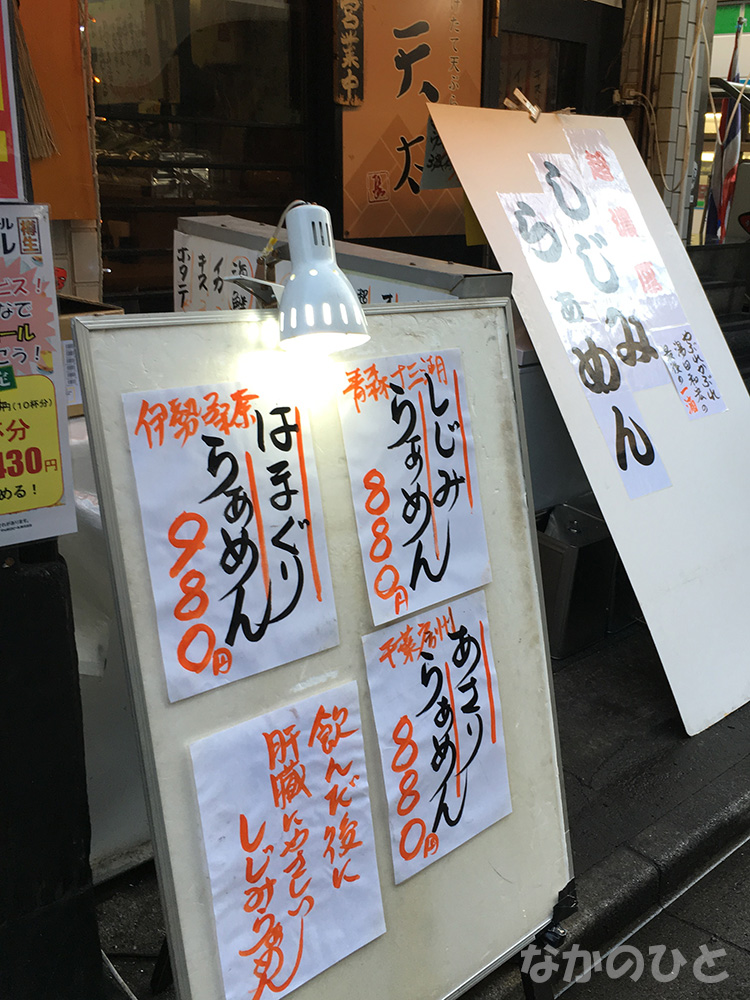 営業中
天太
ル
樽生
ービス！
なて
ール
こう！
円(10杯分)
杯分
430円
める！
イカ
キス
ホタテ
海鮮
しじみ
らぁめん
やぶれかぶれ
湯田和宏の
最後の一酒
伊勢桑名
はまぐり
らぁめん
980円
青森十三湖
しじみ
らぁめん
880円
千葉房州
あさり
らぁめん
880円
飲んだ後に
肝臓にやさしい
しじみらぁめん
なかのひと